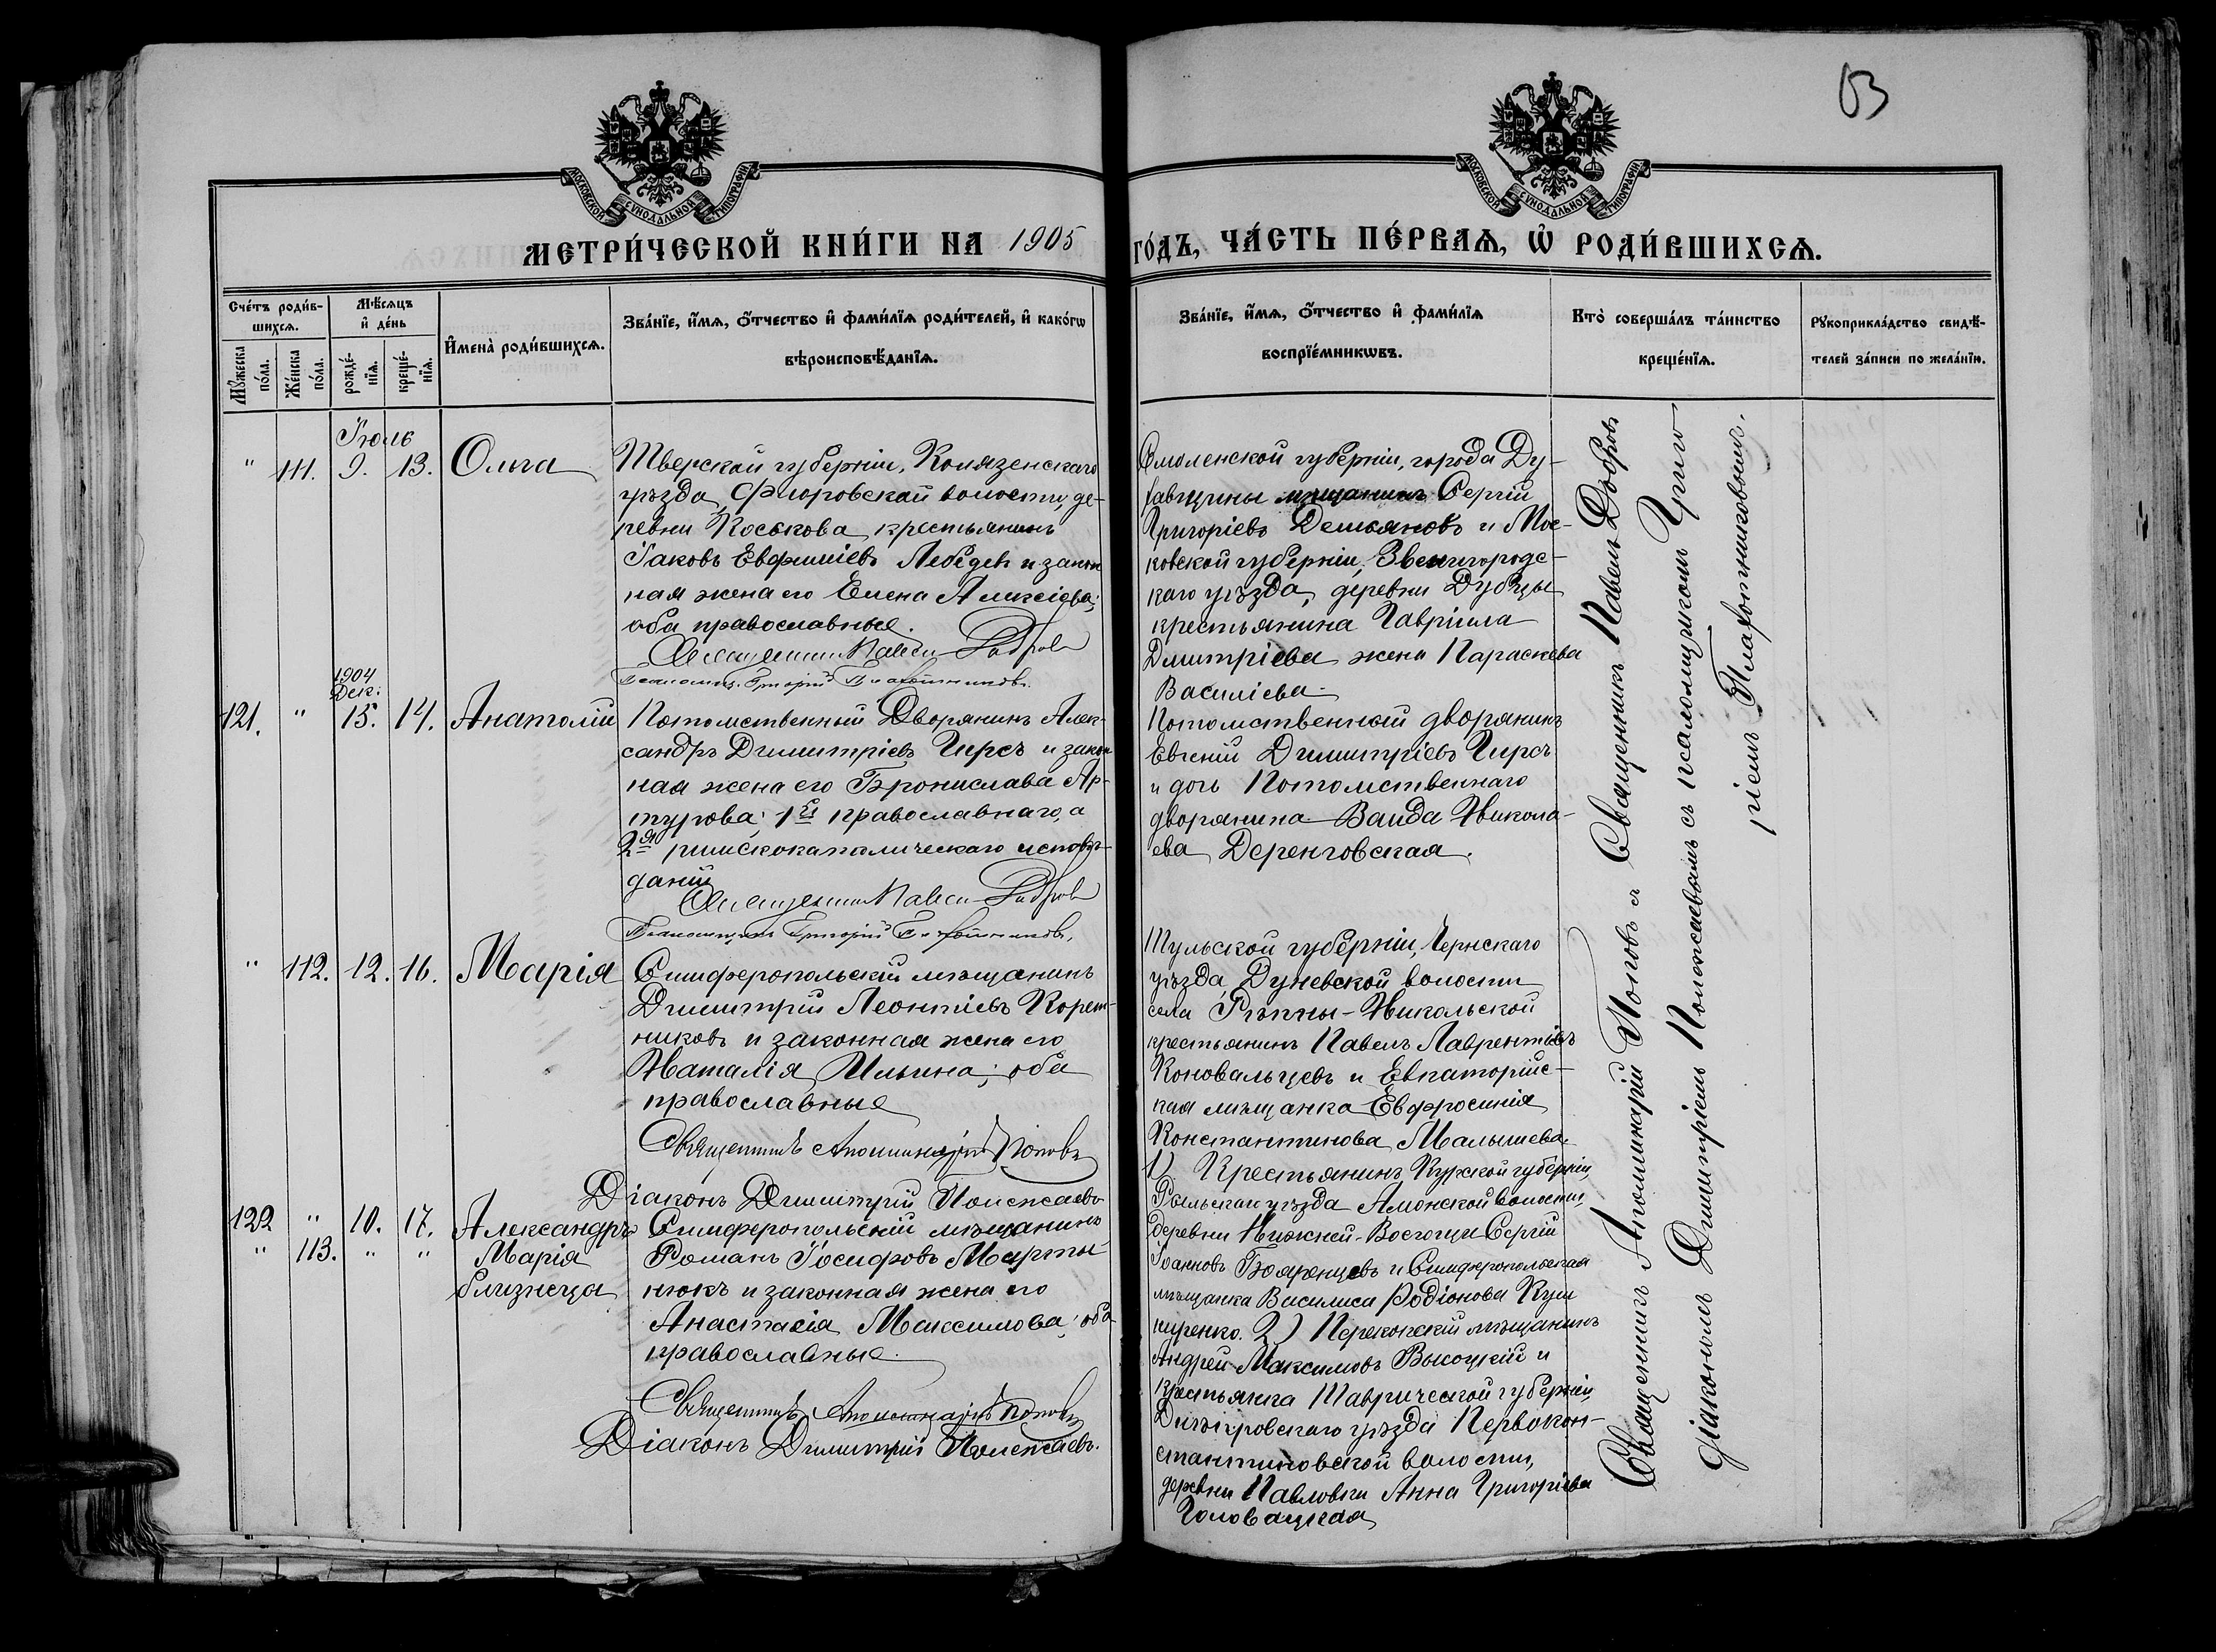 63
МОСКОВСКОЙ СУНОДАЛЬНОЙ ТИПОГРАФІИ
МОСКОВСКОЙ СУНОДАЛЬНОЙ ТИПОГРАФІИ
МЕТРИ́ЧЕСКОЙ КНИ́ГИ НА 1905 ГО́ДЪ, ЧА́СТЬ ПЕ́РВАѦ, Ѡ҆ РОДИ́ВШИХСѦ.
Сче́тъ роди́в-
шихсѧ.
Мꙋ́жеска по́ла.
Же́нска по́ла.
Мѣ́сѧцъ
и҆ де́нь
рожде́-
нїѧ.
креще́-
нїѧ.
И҆мена̀ роди́вшихсѧ.
Зва́нїе, и҆́мѧ, ѻ҆́тчество и҆ фами́лїѧ роди́телей, и҆ како́гѡ
вѣроисповѣ́данїѧ.
Зва́нїе, и҆́мѧ, ѻ҆́тчество и҆ фами́лїѧ
воспрїе́мникѡвъ.
Кто̀ соверша́лъ та́инство
креще́нїѧ.
Рꙋкоприкла́дство свидѣ́-
телей за́писи по жела́нїю.
Іюль
" 111. 9. 13. Ольга
Тверской губерніи, Колязенскаго
уѣзда, Фларовской волости, де-
ревни Коськова крестьянинъ
Іаковъ Евфиміевъ Лебедевъ и закон
ная жена его Елена Алексіева;
оба православные.
Священникъ Павелъ Добровъ
Псаломщ. Григорій Плафотниковъ.
Смоленской губерніи, города Ду-
ховщины мѣщанинъ Сергій
Григоріевъ Демьяновъ и Мос-
ковской губерніи, Звенигородс-
каго уѣзда, деревни Дубцы
крестьянина Гавріила
Дмитріева жена Параскева
Василіева.
1904
Дек.
121. " 15. 14. Анатолій
Потомственный Дворянинъ Алек-
сандръ Димитріевъ Гирсъ и закон
ная жена его Бронислава Ар-
турова; 1й православнаго, а
2я римскокатолическаго исповѣ-
даній
Священникъ Павелъ Добровъ
Псаломщикъ Григорій Плафотниковъ.
Потомственный дворянинъ
Евгеній Димитріевъ Гирсъ
и дочь Потомственнаго
дворянина Ванда Никола-
ева Деренговская.
" 112. 12. 16. Марія
Симферопольскій мѣщанинъ
Димитрій Леонтіевъ Корет-
никовъ и законная жена его
Наталія Ильина; оба
православные
Священникъ Аполлинарій Поповъ
Діаконъ Димитрій Полежаевъ
Тульской губерніи, Чернскаго
уѣзда, Дуневской волости
села Рѣппы-Никольской
крестьянинъ Павелъ Лаврентіевъ
Коновальцевъ и Евпаторійс-
кая мѣщанка Евфросинія
Константинова Малышева.
122 " 10. 17. Александръ
" 113. " " Марія
близнецы
Симферопольскій мѣщанинъ
Романъ Іосифовъ Марты-
нюкъ и законная жена его
Анастасія Максимова; оба
православные.
Священникъ Аполлинарій Поповъ
Діаконъ Димитрій Полежаевъ.
1) Крестьянинъ Курской губерніи,
Рыльскаго уѣзда Амонской волости,
деревни Нижней-Восгощи Сергій
Іоанновъ Бояренцевъ и Симферопольская
мѣщанка Василиса Родіонова Куш
ниренко. 2) Перекопскій мѣщанинъ
Андрей Максимовъ Высоцкій и
крестьянка Таврической губерніи,
Днѣпровскаго уѣзда Первокон-
стантиновской волости,
деревни Павловки Анна Григоріева
Головацкая
Священникъ Аполлинарій Поповъ и Священникъ Павелъ Добровъ
діакономъ Димитріемъ Полежаевымъ съ псаломщикомъ Григо-
ріемъ Плафотниковымъ.